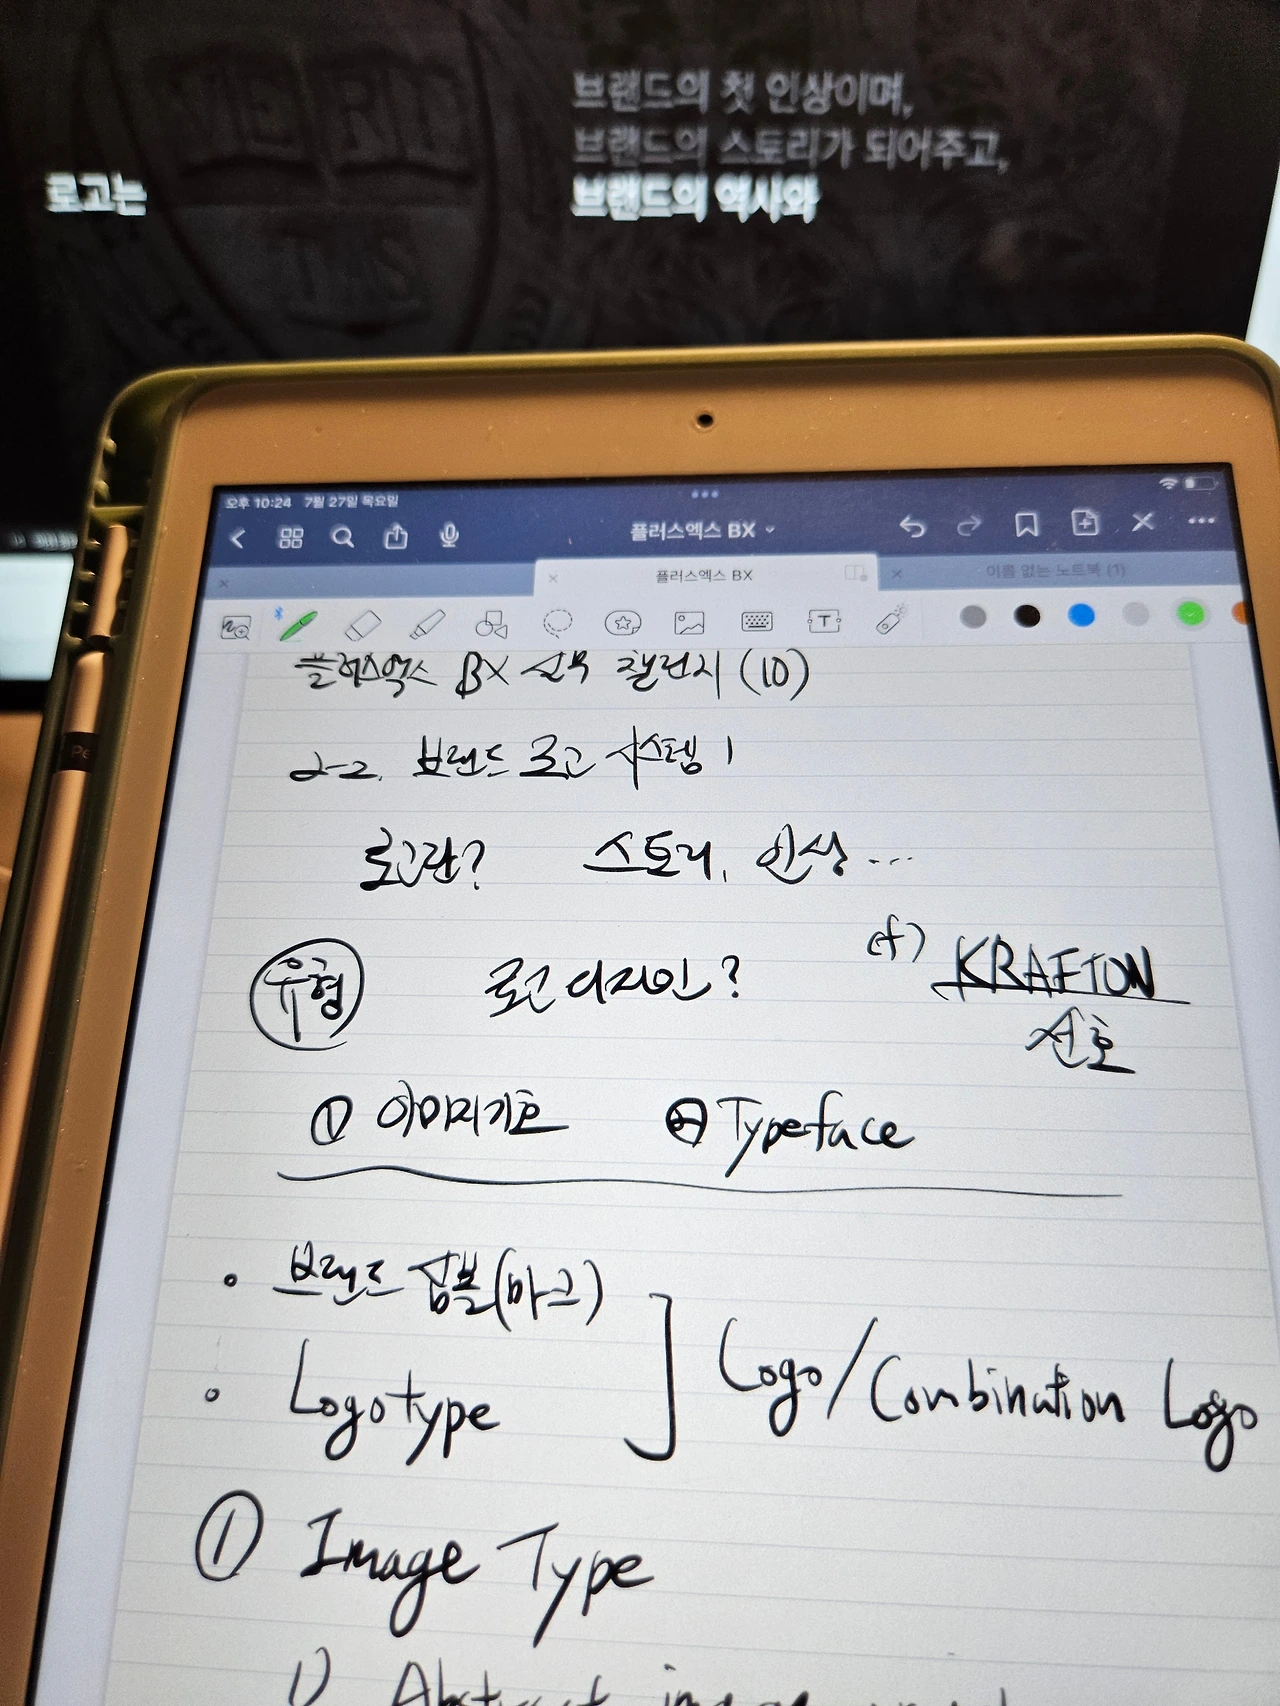 브랜드의 첫 인상이며,
브랜드의 스토리가 되어주고,
로고는 브랜드의 역사와
오후 10:24 7월 27일 목요일
플러스엑스 BX
플러스엑스 BX
이름 없는 노트북 (1)
플러스엑스 BX 실무 챌린지 (10)
2-2. 브랜드 로고 시스템 1
로고란? 스토리, 인상...
유형 로고 디자인? cf) KRAFTON
선호
① 이미지기호 ② Typeface
• 브랜드 심볼(마크)
• Logotype ] Logo/Combination Logo
① Image Type
1) Abstract image